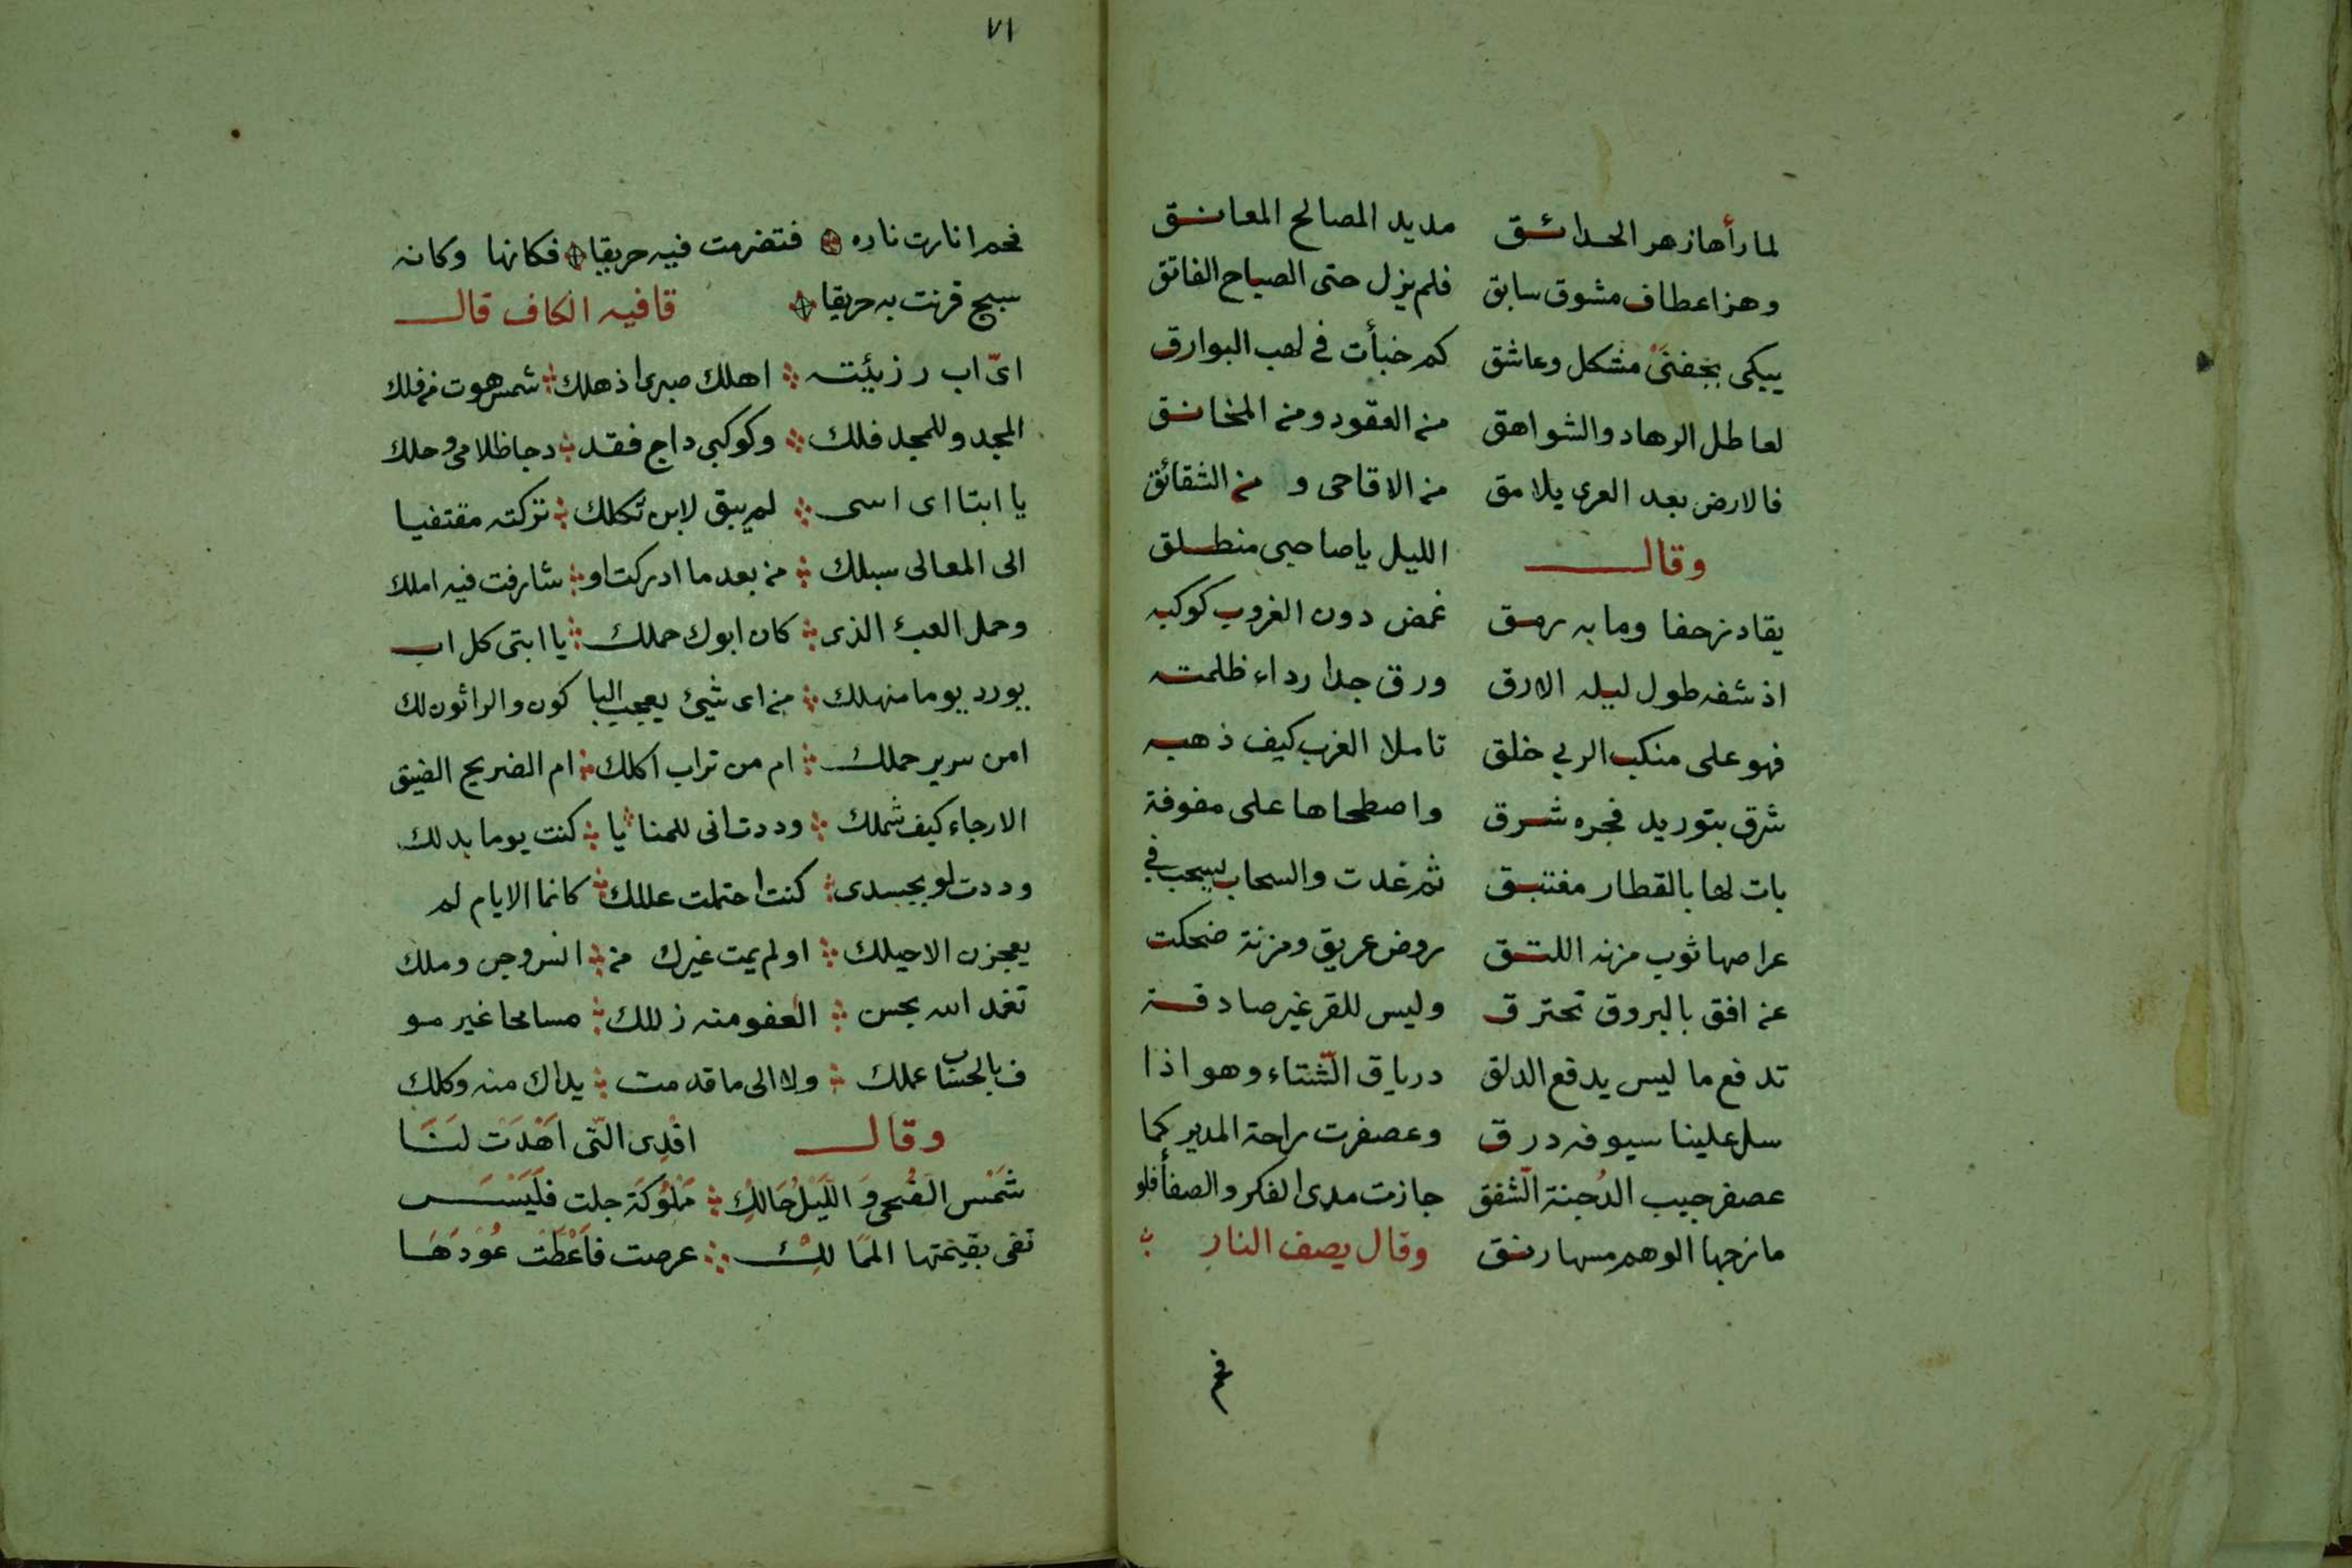 لما رأها زهر الحدائق مد يد المصالح المعانق
وهزا عطاف مشوق سابق فلم يزل حتى الصباح الفاتق
يبكى بجفنى مشكل وعاشق كم خبأت فى لهب البوارق
لعاطل الرهاد والشواهق من العقود ومن المخانق
فالارض بعد العرى يلامق من الاقاحى و من الشقائق
وقال الليل يا صاحبى منطلق
يقاد زحفا وما به رمق غمض دون الغروب كوكبه
اذ شفه طول ليله الارق ورق جدا رداء ظلمته
فهو على منكب الربى خلق تاملا الغرب كيف ذهبه
شرق بتوريد فجره شرق واصطحاها على مفوفة
بات لها بالقطار مغتبق ثم غدت والسحاب يسحب فى
عراصها ثوب مزنه اللثق روض عريق ومزنة ضحكت
عن افق بالبروق تحترق وليس للقر غير صادقة
تدفع ما ليس يدفع الدلق درياق الشتاء وهو اذا
سل علينا سيوفه درق وعصفرت راحة المدير كما
عصفر جيب الدجنة الشفق جازت مدى الفكر والصفا فلو
مازجها الوهم مسها رنق وقال يصف النار
فحم
٧١
فحم انارت ناره فتضرمت فيه حريقا فكانها وكانه
سبج قرنت به حريقا قافيه الكاف قال
اىّ اب رزئيته اهلك صبرى اذ هلك شمس هوت من فلك
المجد وللمجد فلك وكوكبى داج فقد دجا ظلامى وحلك
يا ابتا اى اسى لم يبق لابن ثكلك تركته مقتفيا
الى المعالى سبلك من بعد ما ادركت او شارفت فيه املك
وحمل العبء الذى كان ابوك حملك يا ابتى كل اب
يورد يوما منهلك من اى شيئ يعجب البا كون والراثون لك
امن سرير حملك ام من تراب اكلك ام الضريح الضيق
الارجاء كيف شملك وددت انى للمنا يا كنت يوما بدلك
وددت لو بجسدى كنت احتملت عللك كانما الايام لم
يعجزن الا حيلك او لم يمت غيرك من انس وجن وملك
تغمد الله بحسن العفو منه زللك مسامحا غير مو
ف بالحساب عملك ولا الى ما قدمت يداك منه وكلك
وقال افدى التى اهدت لنا
شمس الضحى والليل حالك مملوكة جلت فليس
تفى بقيمتها الممالك عرضت فاعطت عودها